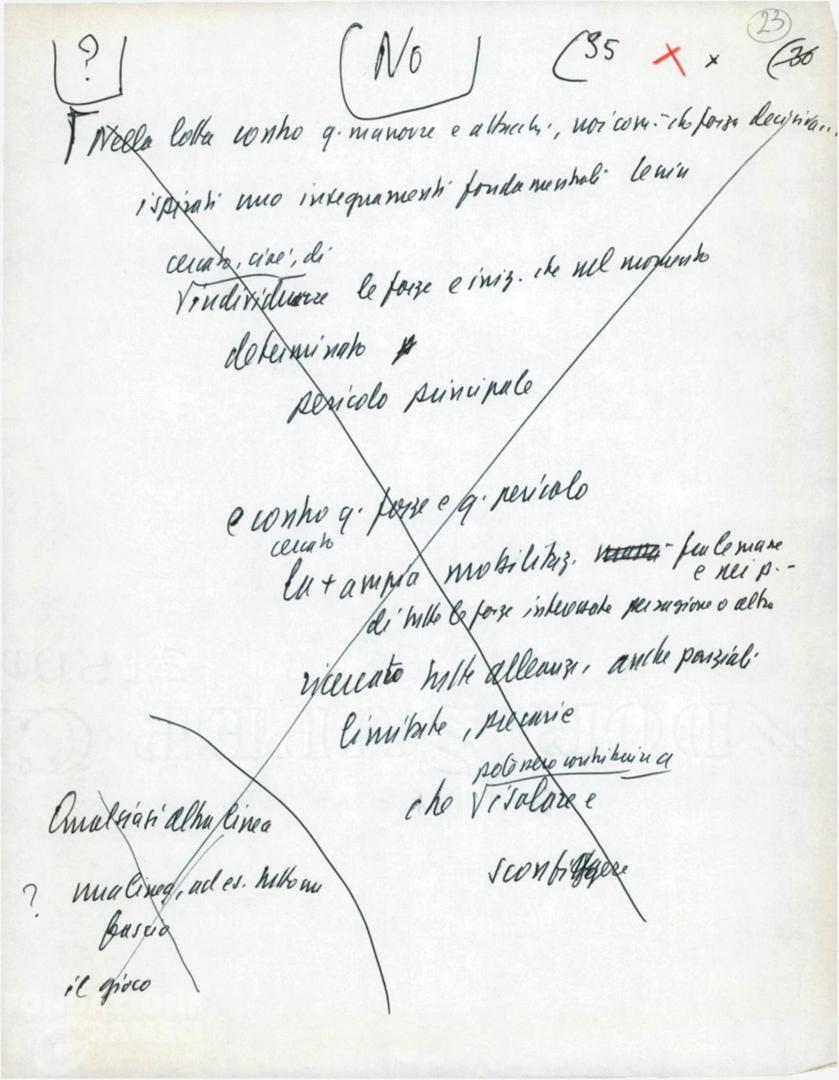 23
?
No
35 × × 36
Nella lotta contro q. manovre e attacchi, noi com. - che forza decisiva...
ispirati uno insegnamenti fondamentali Lenin
cercato, cioè, di
individuare le forze e iniz. che nel momento
determinato
pericolo principale
e contro q. forze e q. pericolo
cercato
la + ampia mobilitaz.
e nei p.-
di tutte le forze interessate per ragione o altra
ricercato tutte alleanze, anche parziali
limitate, precarie
potessero contribuire a
che isolare e
sconfiggere
Qualsiasi altra linea
? una linea, ad es. tutto un
fascio
il gioco